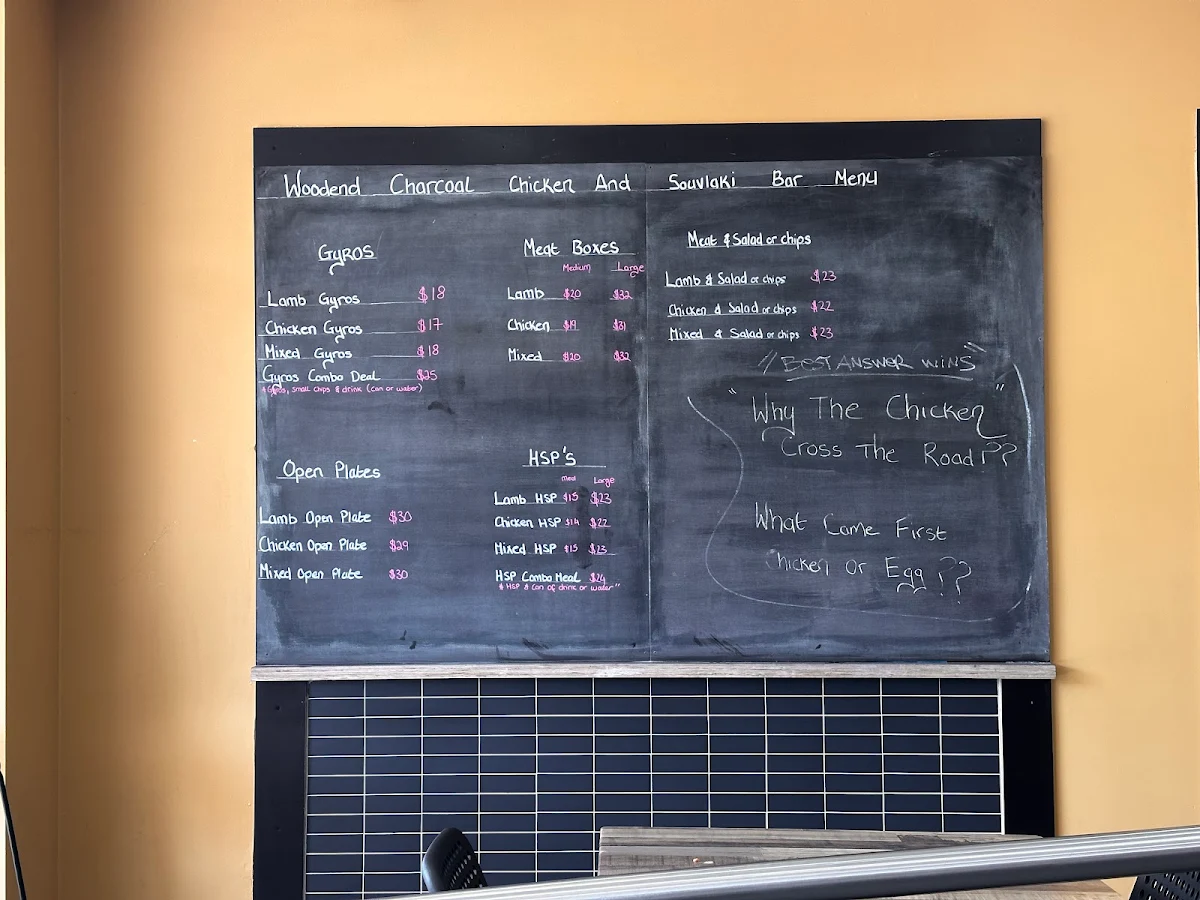 Woodend Charcoal Chicken And Souvlaki Bar Menu
Gyros
Lamb Gyros $18
Chicken Gyros $17
Mixed Gyros $18
Gyros Combo Deal $25
Gyros, small chips & drink (can or water)
Meat Boxes
Medium Large
Lamb $20 $32
Chicken $19 $31
Mixed $20 $32
Meat & Salad or chips
Lamb & Salad or chips $23
Chicken & Salad or chips $22
Mixed & Salad or chips $23
Open Plates
Lamb Open Plate $30
Chicken Open Plate $29
Mixed Open Plate $30
HSP's
Med Large
Lamb HSP $15 $23
Chicken HSP $14 $22
Mixed HSP $15 $23
HSP Combo Meal $24
HSP & Can of drink or water"
"BEST ANSWER WINS"
"Why The Chicken"
Cross The Road??
What Came First
Chicken or Egg??